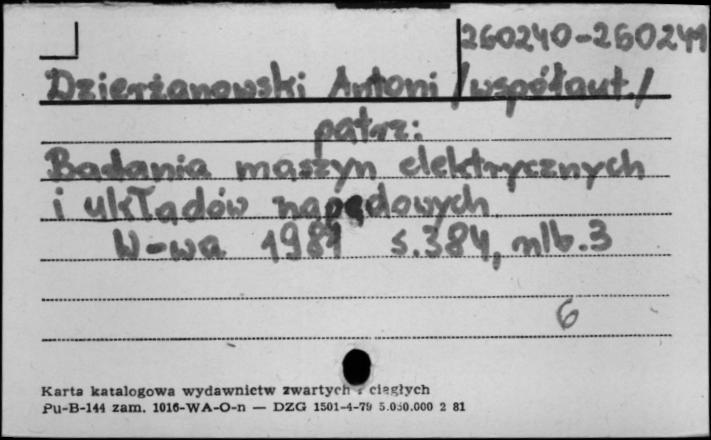 260240-260241
Dzierżanowski Antoni /współaut./
patrz:
Badania maszyn elektrycznych
i układów napędowych
W-wa 1981 s.384, nlb.3
6
Karta katalogowa wydawnictw zwartych i ciągłych
Pu-B-144 zam. 1016-WA-O-n — DZG 1501-4-79 5.050.000 2 81